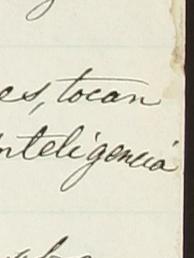 es, tocan
nteligencia